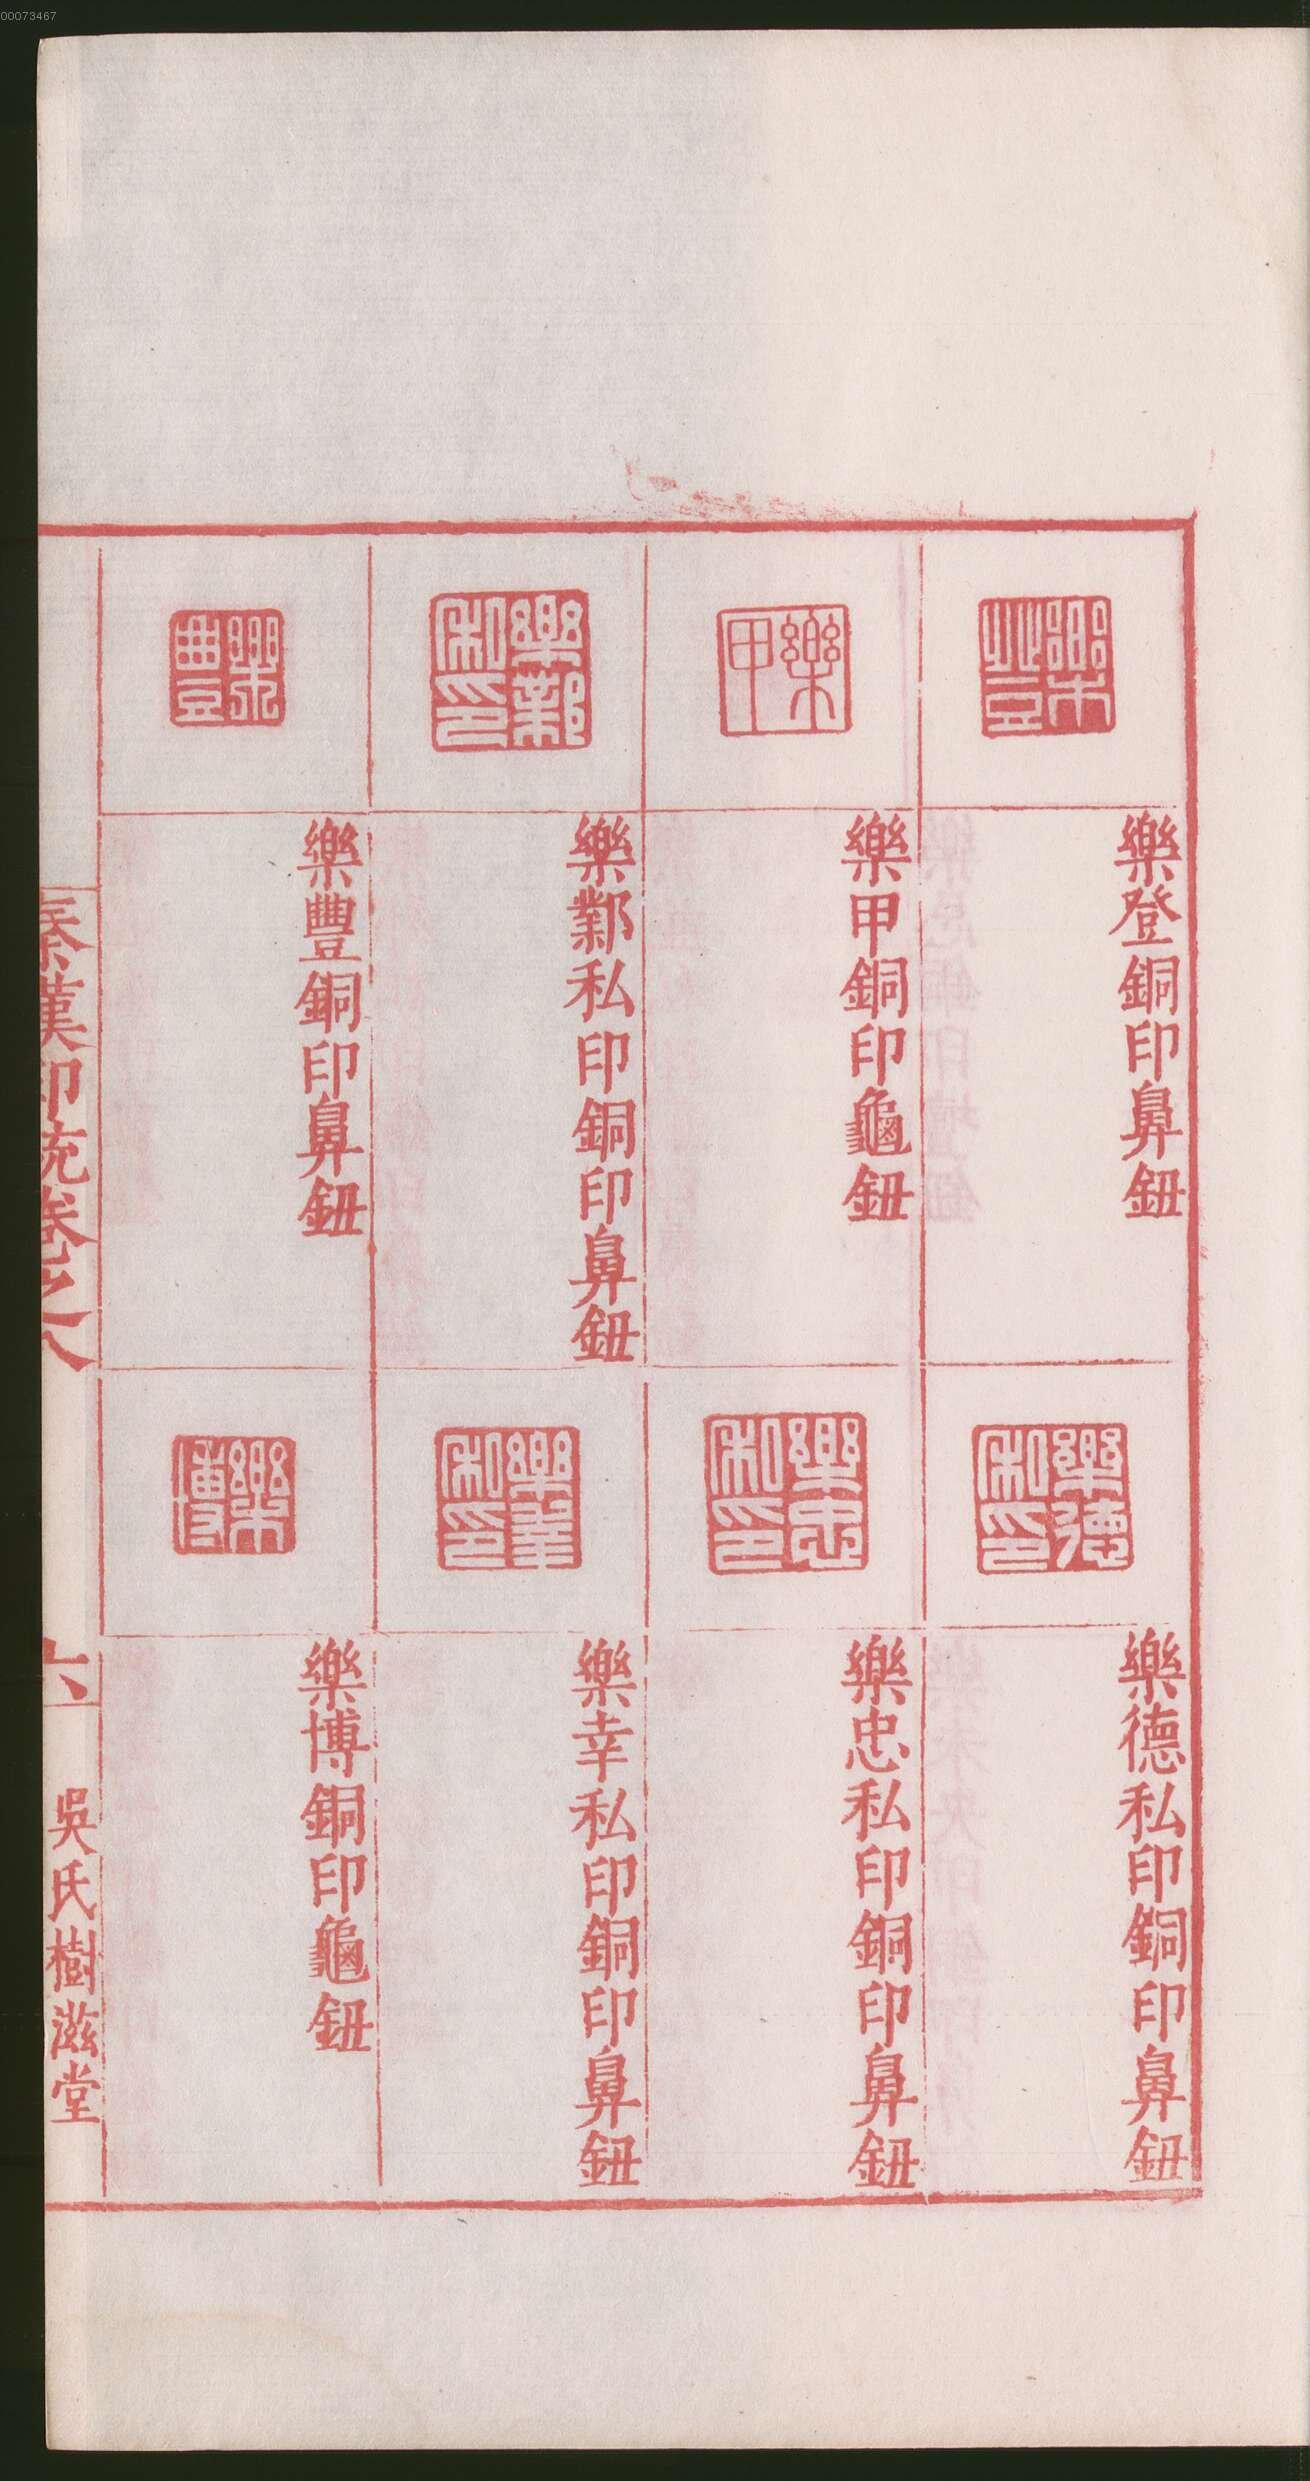 00073467
樂登銅印鼻鈕
樂甲銅印龜鈕
樂鄴私印銅印鼻鈕
樂豐銅印鼻鈕
樂德私印銅印鼻鈕
樂忠私印銅印鼻鈕
樂幸私印銅印鼻鈕
樂博銅印龜鈕
秦漢印統卷之八
六
吳氏樹滋堂